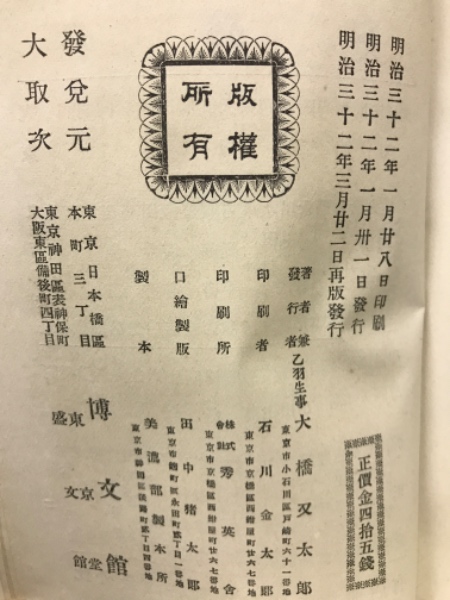 明治三十二年一月廿八日印刷
明治三十二年一月卅一日發行
明治三十二年三月廿二日再版發行
正價金四拾五錢
版權
所有
著者兼
發行者
乙羽生事
大橋又太郎
東京市小石川區戸崎町六十一番地
印刷者
石川金太郎
東京市京橋區西紺屋町廿六七番地
印刷所
株式
會社
秀英舍
東京市京橋區西紺屋町廿六七番地
口繪製版
田中猪太郎
東京市麹町區永田町貳丁目一番地
製本
美濃部製本所
發兌元
東京日本橋區
本町三丁目
博文館
大取次
東京神田區表神保町
東京堂
大阪東區備後町四丁目
盛文館